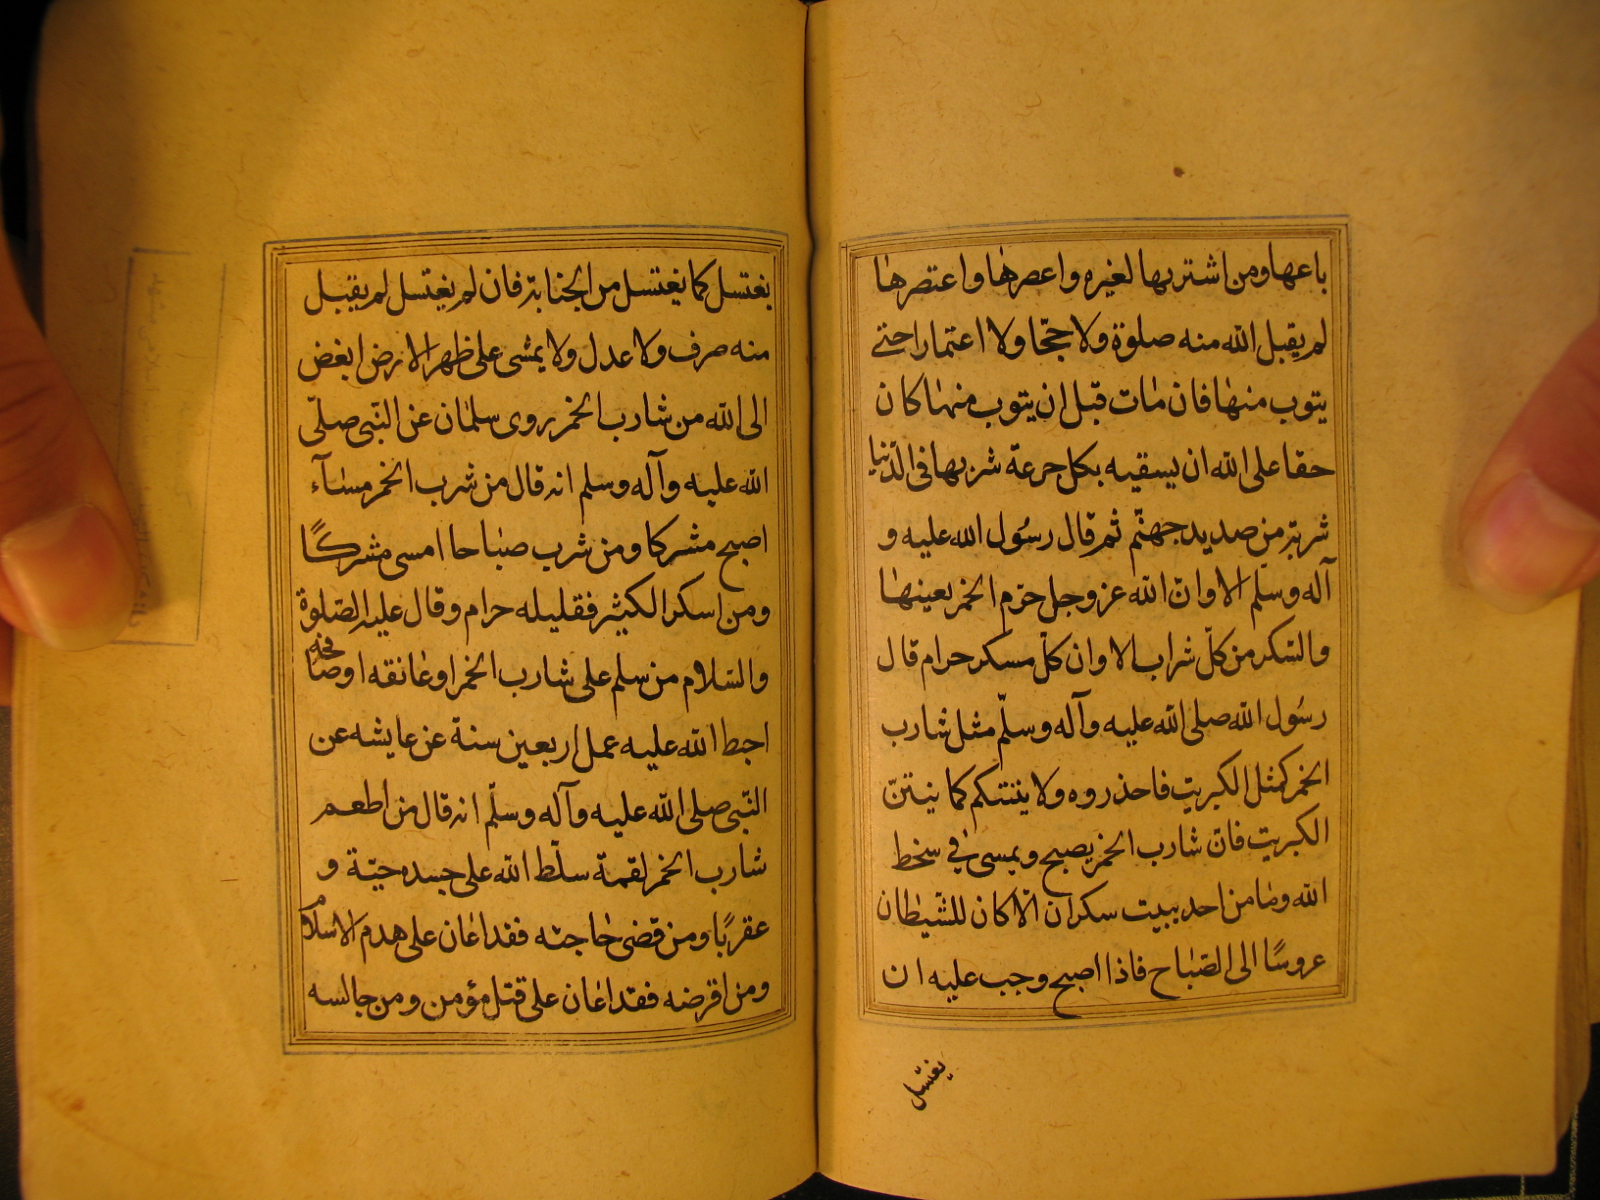 باعها ومن اشتريها لغيره واعصرها واعتصرها
لم يقبل الله منه صلوة ولا حجّا ولا اعتمارا حتى
يتوب منها فان مات قبل ان يتوب منها كان
حقا على الله ان يسقيه بكل جرعة شربها فى الدّنيا
شربة من صديد جهنّم ثم قال رسُول الله عليه و
آله وسلم الا وانّ الله عز وجل حرّم الخمر بعينها
والسّكر من كلّ شراب الا وان كلّ مسكر حرام قال
رسُول الله صلى الله عليه وآله وسلّم مثل شارب
الخمر كمثل الكبريت فاحذروه ولا ينتنكم كما ينتنّ
الكبريت فانّ شارب الخمر يصبح ويمسى فى سخط
الله وما من احد يبيت سكران الّا كان للشّيطان
عروسًا الى الصّباح فاذا اصبح وجب عليه ان
يغتسل
يغتسل كما يغتسل من الجنابة فان لم يغتسل لم يقبل
منه صرف ولا عدل ولا يمشى على ظهر الارض ابغض
الى الله من شارب الخمر روى سلمان عن النّبى صلّى
الله عليه وآله وسلم انه قال من شرب الخمر مساءً
اصبح مشركا ومن شرب صباحا امسى مشركًا
ومن اسكر الكثير فقليله حرام وقال عليه الصّلوة
والسّلام من سلم على شارب الخمر او عانقه او صافحه
احبط الله عليه عمل اربعين سنة عن عايشه عن
النّبى صلى الله عليه وآله وسلّم انه قال من اطعم
شارب الخمر لقمة سلّط الله على جسده حيّة و
عقربًا ومن قضى حاجته فقد اعان على هدم الاسلام
ومن اقرضه فقد اعان على قتل مؤمن ومن جالسه